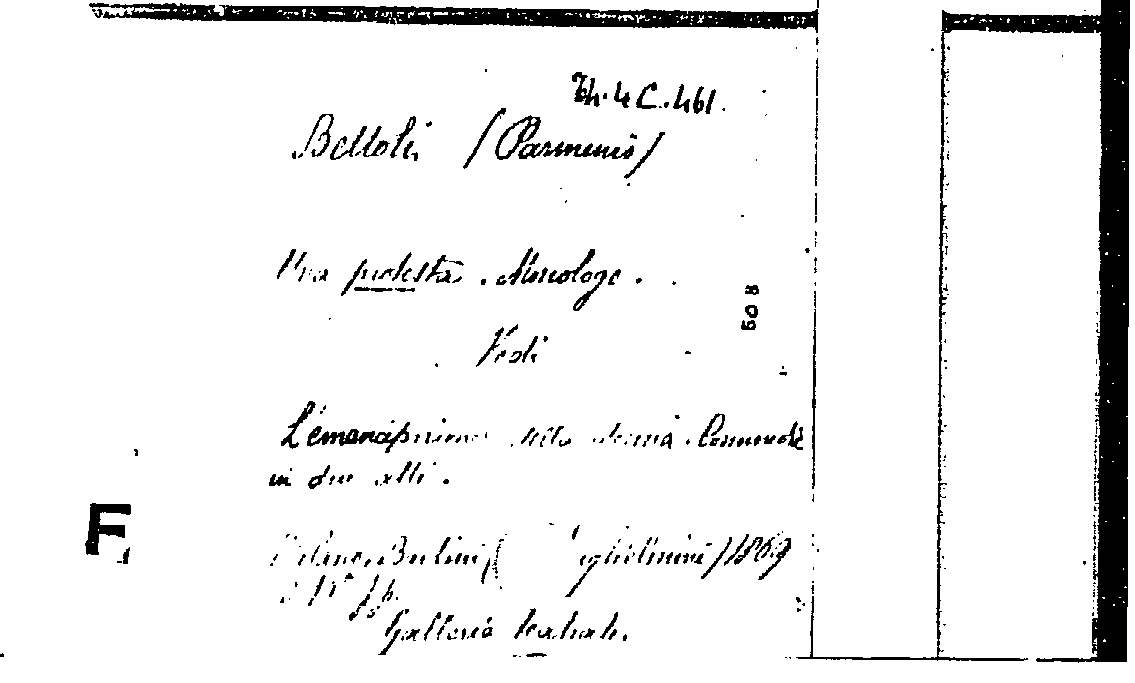 Th. 4 C. 461.
Bettoli (Parmenio)
Una protesta. Monologo.
508
Vedi
L'emancipazione della donna. Commedia
in due atti.
F.
Milano, Barbini (Guglielmini) 1869
Galleria teatrale.